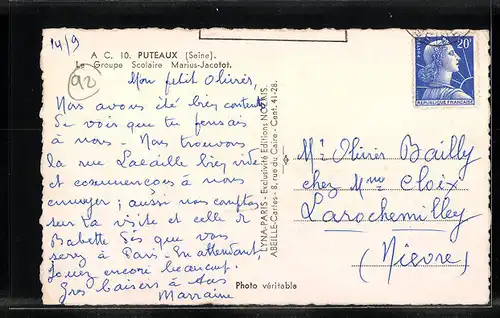 14/9
A C. 10. PUTEAUX (Seine).
Le Groupe Scolaire Marius-Jacotot.
92
Mon petit Olivier,
Nous avons été bien contents
de voir que tu pensais
à nous. Nous trouvons
la rue Lacaille bien vide
et commençons à nous
ennuyer ; aussi nous comptons
sur ta visite et celle de
Babette dès que vous
serez à Paris. En attendant,
jouez encore beaucoup.
Gros baisers à tous
Marraine
LYNA-PARIS - Exclusivité Editions NOZAIS
ABEILLE-Cartes - 8, rue du Caire - Cent. 41-28.
Photo véritable
POSTES
20F
REPUBLIQUE FRANÇAISE
Mr Olivier Bailly
chez Mme Cloix
Larochemilley
(Nièvre)